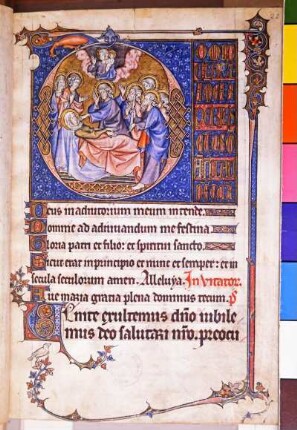 Deus in adiutorium meum intende.
Domine ad adiuuandum me festina
Gloria patri et filio: et spiritui sancto.
Sicut erat in principio et nunc et semper: et in
secula seculorum amen. Alleluya. Inuitator.
Aue maria gracia plena dominus tecum. p̃
Uenite exultemus dño iubile
mus deo salutari nr̃o. preocu